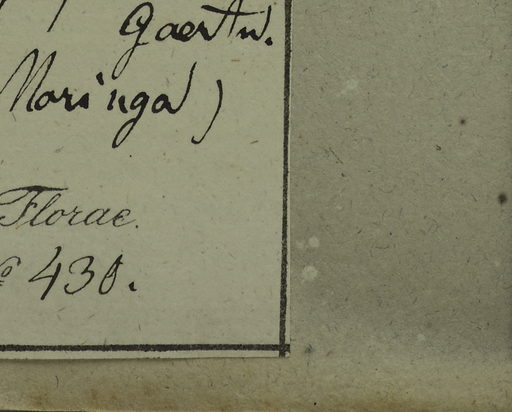 Gaertn.
Moringa)
Florae.
º 430.